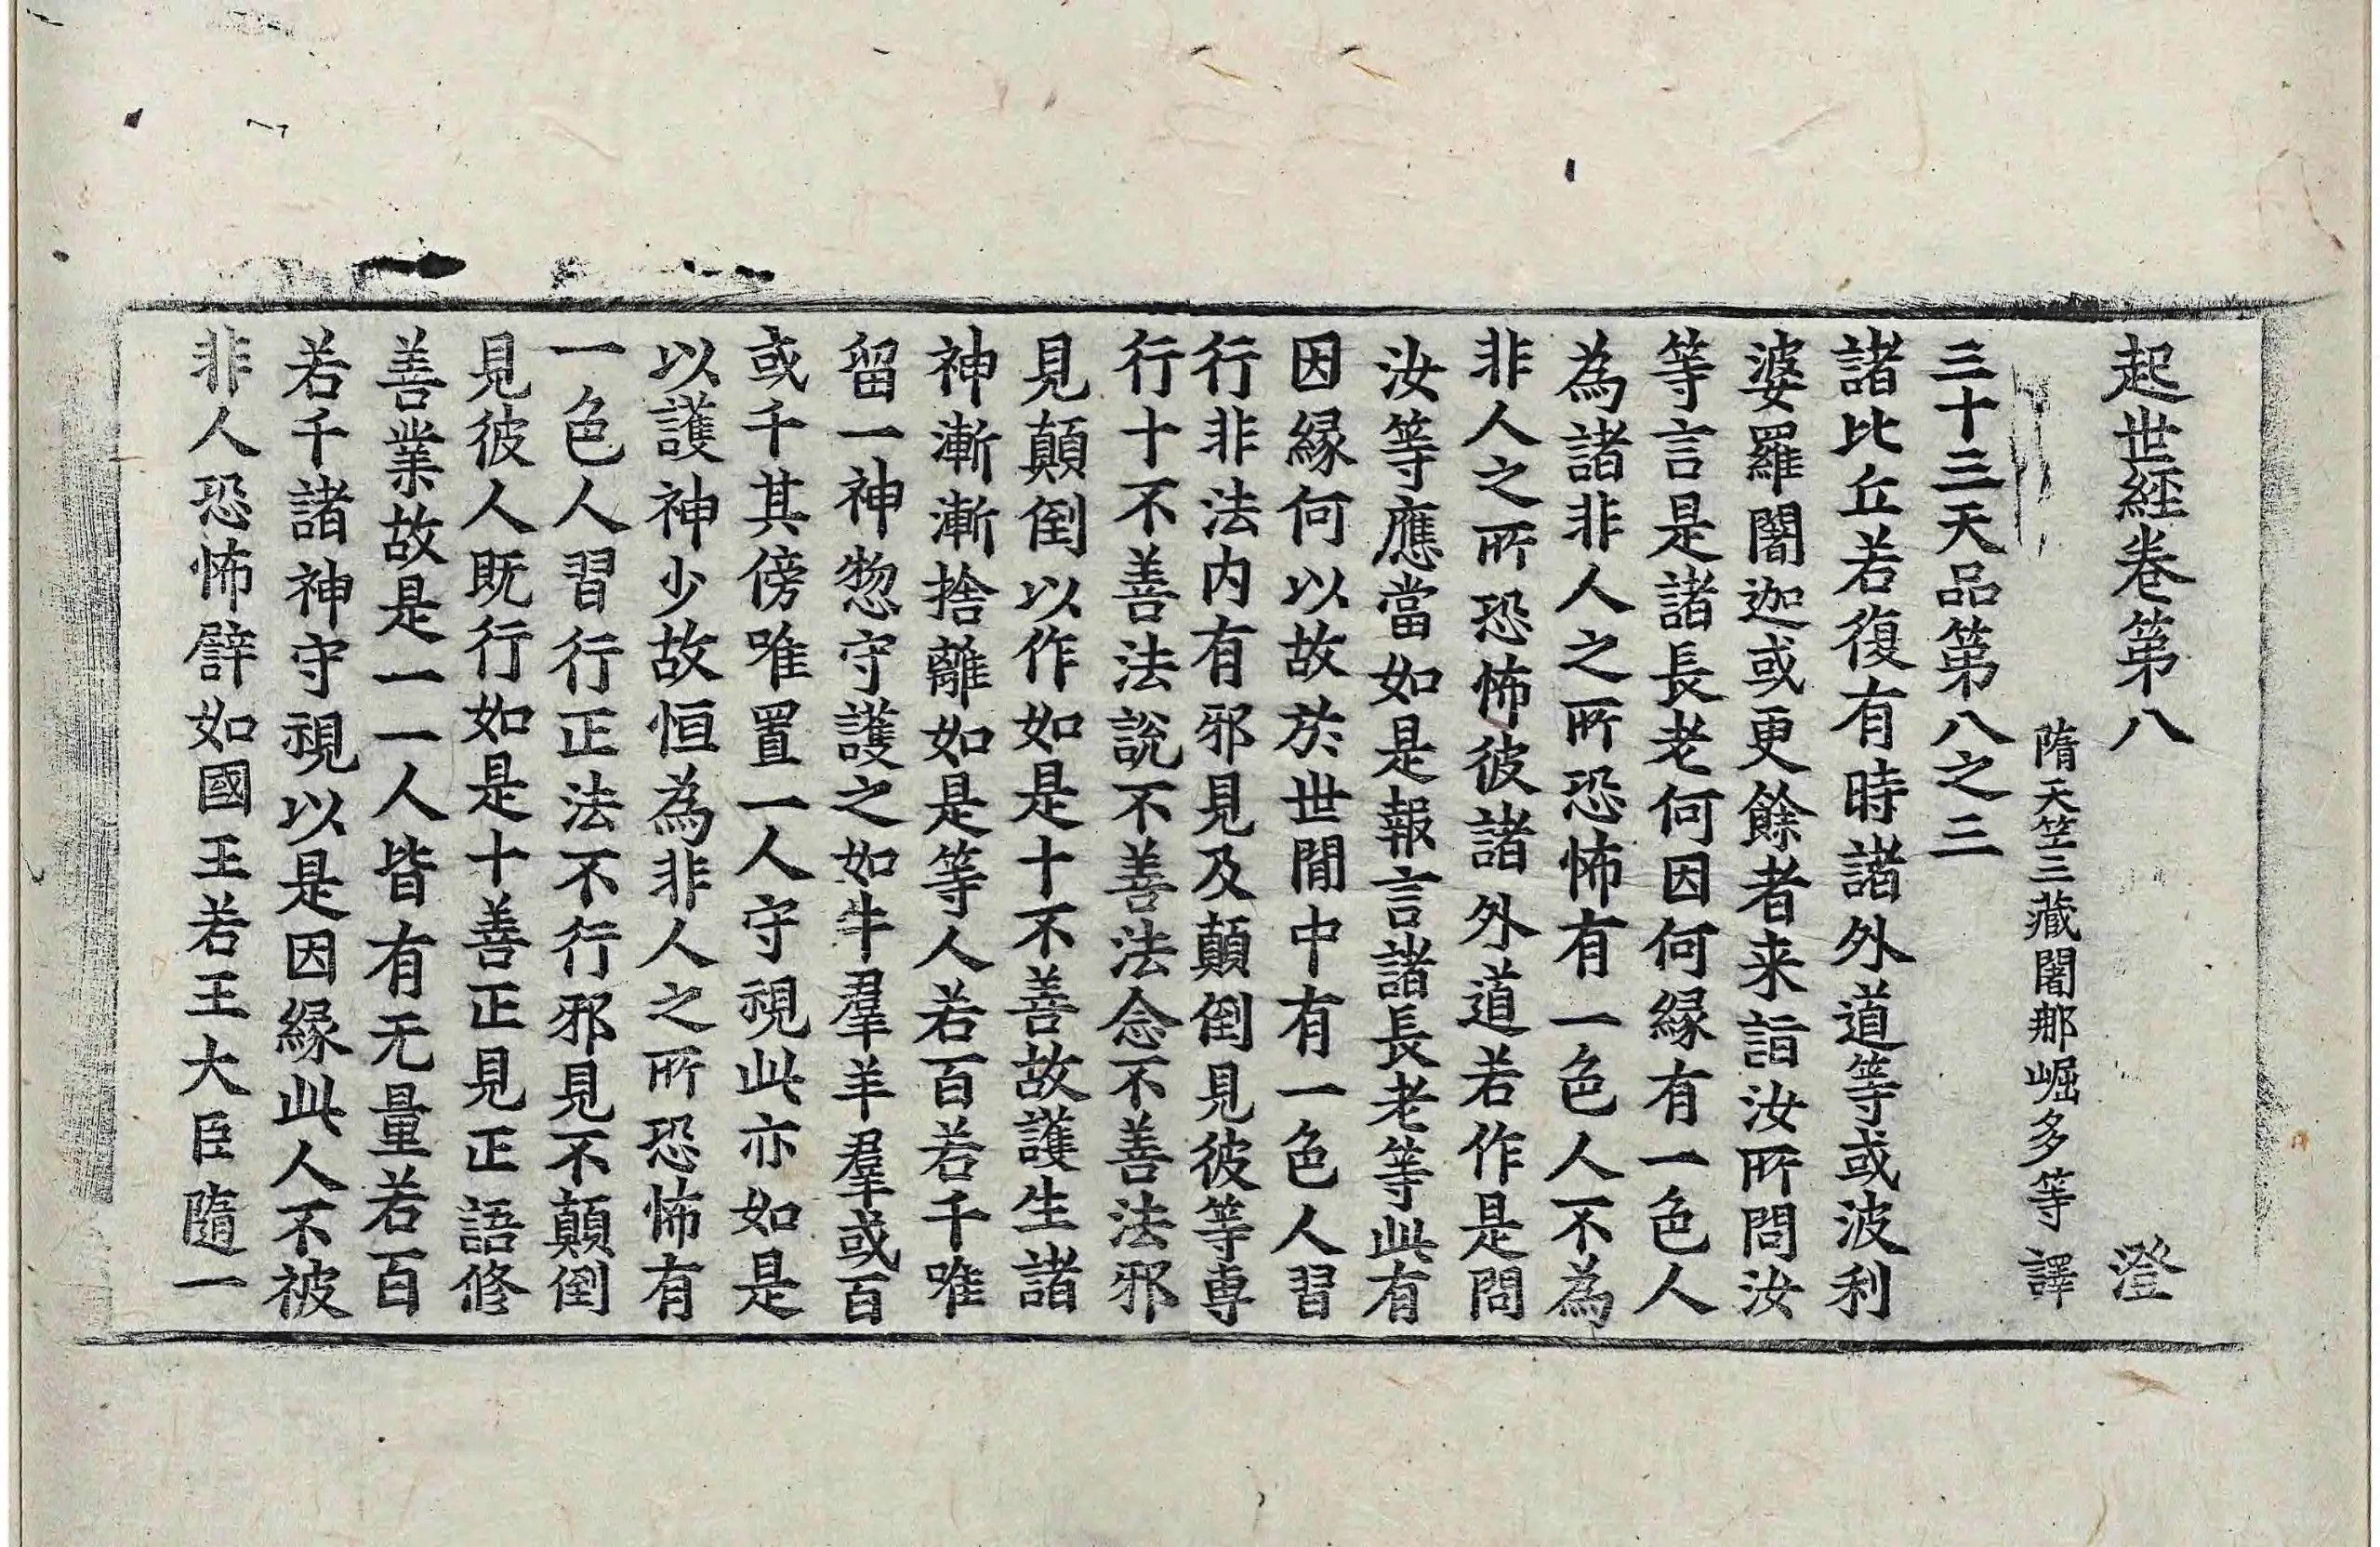 起世經卷第八　澄
隋天笠三藏闍那崛多等譯
三十三天品第八之三
諸比丘若復有時諸外道等或波利
婆羅闍迦或更餘者来詣汝所問汝
等言是諸長老何因何縁有一色人
為諸非人之所恐怖有一色人不為
非人之所恐怖彼諸外道若作是問
汝等應當如是報言諸長老等此有
因縁何以故於世間中有一色人習
行非法内有邪見及顛倒見彼等専
行十不善法說不善法念不善法邪
見顛倒以作如是十不善故護生諸
神漸漸捨離如是等人若百若千唯
留一神惣守護之如牛羣羊羣或百
或千其傍唯置一人守視此亦如是
以護神少故恒為非人之所恐怖有
一色人習行正法不行邪見不顛倒
見彼人既行如是十善正見正語修
善業故是一一人皆有无量若百
若千諸神守視以是因縁此人不被
非人恐怖譬如國王若王大臣隨一